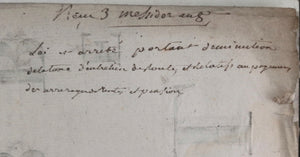 Reçu 3 messidor an 8
Loi et arreté portant diminution
de la taxe d'entretien de routes, et relatifs au payement
des arrerages de rentes et pension